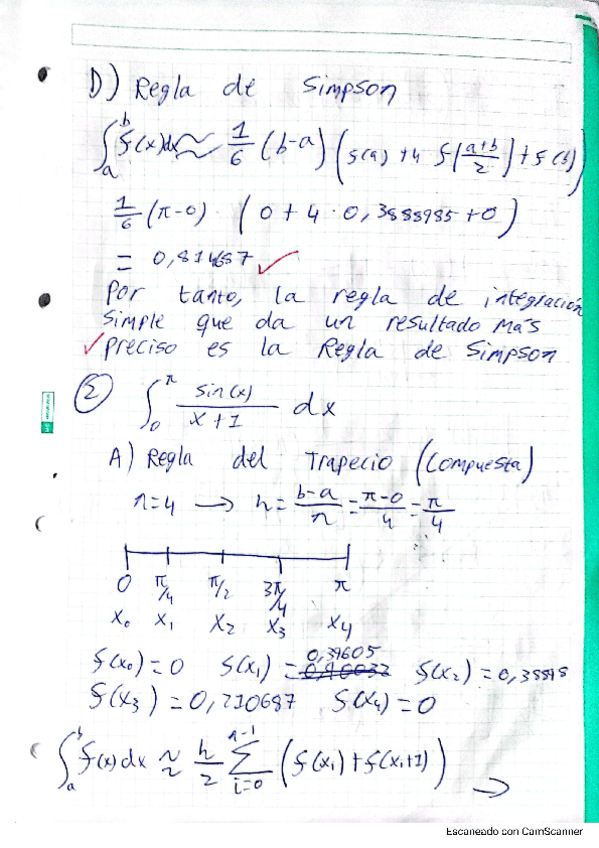 D) Regla de Simpson
∫_a^b f(x)dx ≈ 1/6 (b-a) (f(a) + 4 f[(a+b)/2] + f(b))
1/6 (π-0) · (0 + 4 · 0,3888985 + 0)
= 0,814687 ✓
Por tanto, la regla de integración
simple que da un resultado más
✓ preciso es la Regla de Simpson
② ∫_0^π sin(x)/(x+1) dx
A) Regla del Trapecio (Compuesta)
n=4 → h = (b-a)/n = (π-0)/4 = π/4
0 π/4 π/2 3π/4 π
x₀ x₁ x₂ x₃ x₄
f(x₀) = 0 f(x₁) = 0,39605 f(x₂) = 0,38898
f(x₃) = 0,210687 f(x₄) = 0
∫_a^b f(x) dx ≈ h/2 Σ_{i=0}^{n-1} (f(xi) + f(xi+1)) →
Escaneado con CamScanner